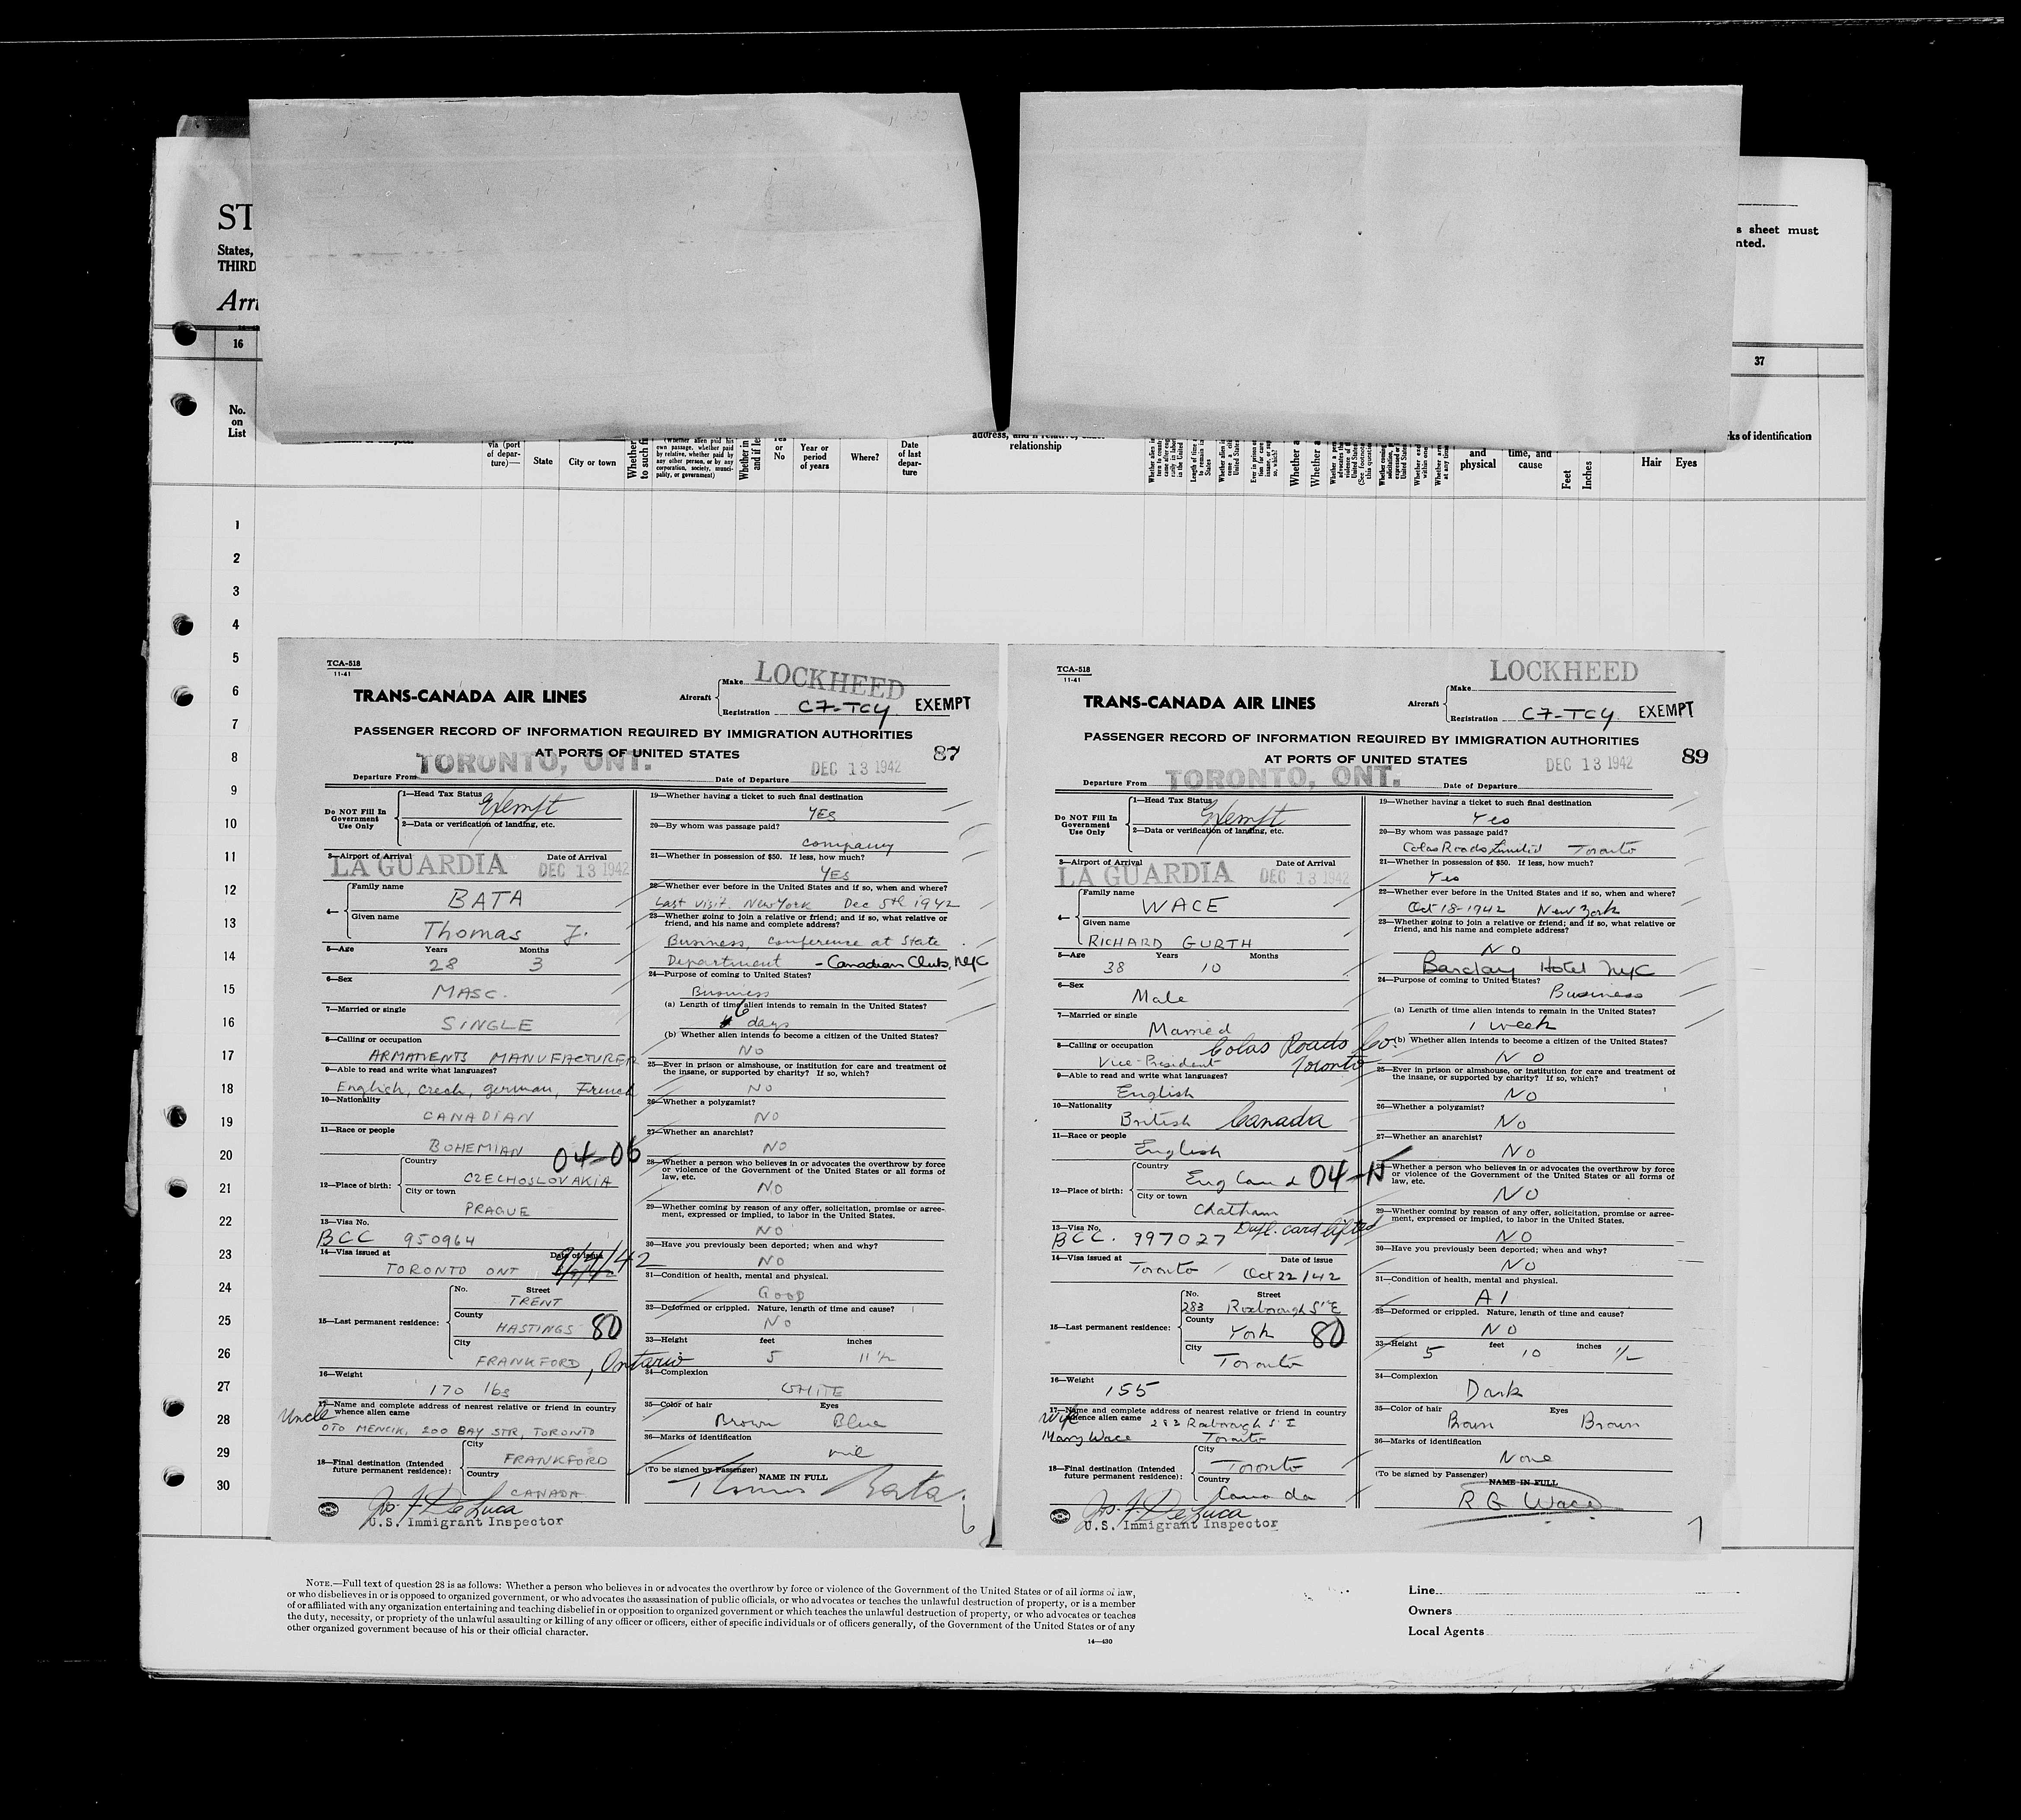 ST
States,
THIRD
Arri
s sheet must
nted.
16
37
No.
on
List
via (port
of depar-
ture)—
State
City or town
Whether
to such fi
(Whether alien paid his
own passage, whether paid
by relative, whether paid by
any other person, or by any
corporation, society, munici-
pality, or government)
Whether in
and if le
or
No
Year or
period
of years
Where?
Date
of last
depar-
ture
address, and if relative,
relationship
and
physical
time, and
cause
Feet
Inches
Hair
Eyes
ks of identification
1
2
3
4
5
6
7
8
9
10
11
12
13
14
15
16
17
18
19
20
21
22
23
24
25
26
27
28
29
30
TCA-518
11-41
TRANS-CANADA AIR LINES
Aircraft
Make LOCKHEED
Registration CF-TCY EXEMPT
PASSENGER RECORD OF INFORMATION REQUIRED BY IMMIGRATION AUTHORITIES
AT PORTS OF UNITED STATES
87
Departure From TORONTO, ONT. Date of Departure DEC 13 1942
Do NOT Fill In
Government
Use Only
1—Head Tax Status Exempt
2—Data or verification of landing, etc.
3—Airport of Arrival Date of Arrival
LA GUARDIA DEC 13 1942
4—
Family name
BATA
Given name
Thomas J.
5—Age Years Months
28 3
6—Sex
MASC.
7—Married or single
SINGLE
8—Calling or occupation
ARMAMENTS MANUFACTURER
9—Able to read and write what languages?
English, Czech, German, French
10—Nationality
CANADIAN
11—Race or people
BOHEMIAN 04-06
12—Place of birth:
Country
CZECHOSLOVAKIA
City or town
PRAGUE
13—Visa No.
BCC 950964
14—Visa issued at Date of issue
TORONTO ONT
15—Last permanent residence:
No. Street
TRENT
County
HASTINGS 80
City
FRANKFORD, Ontario
16—Weight
170 lbs
17—Name and complete address of nearest relative or friend in country
whence alien came
Uncle
OTO MENCIK, 200 BAY STR, TORONTO
18—Final destination (Intended
future permanent residence):
City
FRANKFORD
Country
CANADA
Jos. F. DeLuca
U.S. Immigrant Inspector
19—Whether having a ticket to such final destination
YES
20—By whom was passage paid?
company
21—Whether in possession of $50. If less, how much?
YES
22—Whether ever before in the United States and if so, when and where?
Last visit. New York Dec 5th 1942
23—Whether going to join a relative or friend; and if so, what relative or
friend, and his name and complete address?
Business, conference at State
Department - Canadian Club, NYC
24—Purpose of coming to United States?
Business
(a) Length of time alien intends to remain in the United States?
6 days
(b) Whether alien intends to become a citizen of the United States?
NO
25—Ever in prison or almshouse, or institution for care and treatment of
the insane, or supported by charity? If so, which?
NO
26—Whether a polygamist?
NO
27—Whether an anarchist?
NO
28—Whether a person who believes in or advocates the overthrow by force
or violence of the Government of the United States or all forms of
law, etc.
NO
29—Whether coming by reason of any offer, solicitation, promise or agree-
ment, expressed or implied, to labor in the United States.
NO
30—Have you previously been deported; when and why?
NO
31—Condition of health, mental and physical.
GOOD
32—Deformed or crippled. Nature, length of time and cause?
NO
33—Height feet inches
5 11 1/2
34—Complexion
WHITE
35—Color of hair Eyes
Brown Blue
36—Marks of identification
nil
(To be signed by Passenger) NAME IN FULL
Thomas Bata
6
TCA-518
11-41
TRANS-CANADA AIR LINES
Aircraft
Make LOCKHEED
Registration CF-TCY EXEMPT
PASSENGER RECORD OF INFORMATION REQUIRED BY IMMIGRATION AUTHORITIES
AT PORTS OF UNITED STATES
89
Departure From TORONTO, ONT. Date of Departure DEC 13 1942
Do NOT Fill In
Government
Use Only
1—Head Tax Status Exempt
2—Data or verification of landing, etc.
3—Airport of Arrival Date of Arrival
LA GUARDIA DEC 13 1942
4—
Family name
WACE
Given name
RICHARD GURTH
5—Age Years Months
38 10
6—Sex
Male
7—Married or single
Married
8—Calling or occupation Colas Roads Co.
Vice-President Toronto
9—Able to read and write what languages?
English
10—Nationality
British Canada
11—Race or people
English
12—Place of birth:
Country
England 04-15
City or town
Chatham
13—Visa No.
BCC. 997027 Dupl. card lifted
14—Visa issued at Date of issue
Toronto Oct 22/42
15—Last permanent residence:
No. Street
283 Roxborough St E
County
York 80
City
Toronto
16—Weight
155
17—Name and complete address of nearest relative or friend in country
whence alien came
Wife 283 Roxborough St E
Mary Wace Toronto
18—Final destination (Intended
future permanent residence):
City
Toronto
Country
Canada
Jos. F. DeLuca
U.S. Immigrant Inspector
19—Whether having a ticket to such final destination
Yes
20—By whom was passage paid?
Colas Roads Limited Toronto
21—Whether in possession of $50. If less, how much?
Yes
22—Whether ever before in the United States and if so, when and where?
Oct 18-1942 New York
23—Whether going to join a relative or friend; and if so, what relative or
friend, and his name and complete address?
NO
Barclay Hotel NYC
24—Purpose of coming to United States?
Business
(a) Length of time alien intends to remain in the United States?
1 week
(b) Whether alien intends to become a citizen of the United States?
NO
25—Ever in prison or almshouse, or institution for care and treatment of
the insane, or supported by charity? If so, which?
NO
26—Whether a polygamist?
NO
27—Whether an anarchist?
NO
28—Whether a person who believes in or advocates the overthrow by force
or violence of the Government of the United States or all forms of
law, etc.
NO
29—Whether coming by reason of any offer, solicitation, promise or agree-
ment, expressed or implied, to labor in the United States.
NO
30—Have you previously been deported; when and why?
NO
31—Condition of health, mental and physical.
A1
32—Deformed or crippled. Nature, length of time and cause?
NO
33—Height feet inches
5 10 1/2
34—Complexion
Dark
35—Color of hair Eyes
Brown Brown
36—Marks of identification
None
(To be signed by Passenger) NAME IN FULL
R G Wace
7
NOTE.—Full text of question 28 is as follows: Whether a person who believes in or advocates the overthrow by force or violence of the Government of the United States or of all forms of law,
or who disbelieves in or is opposed to organized government, or who advocates the assassination of public officials, or who advocates or teaches the unlawful destruction of property, or is a member
of or affiliated with any organization entertaining and teaching disbelief in or opposition to organized government or which teaches the unlawful destruction of property, or who advocates or teaches
the duty, necessity, or propriety of the unlawful assaulting or killing of any officer or officers, either of specific individuals or of officers generally, of the Government of the United States or of any
other organized government because of his or their official character.
14—430
Line
Owners
Local Agents